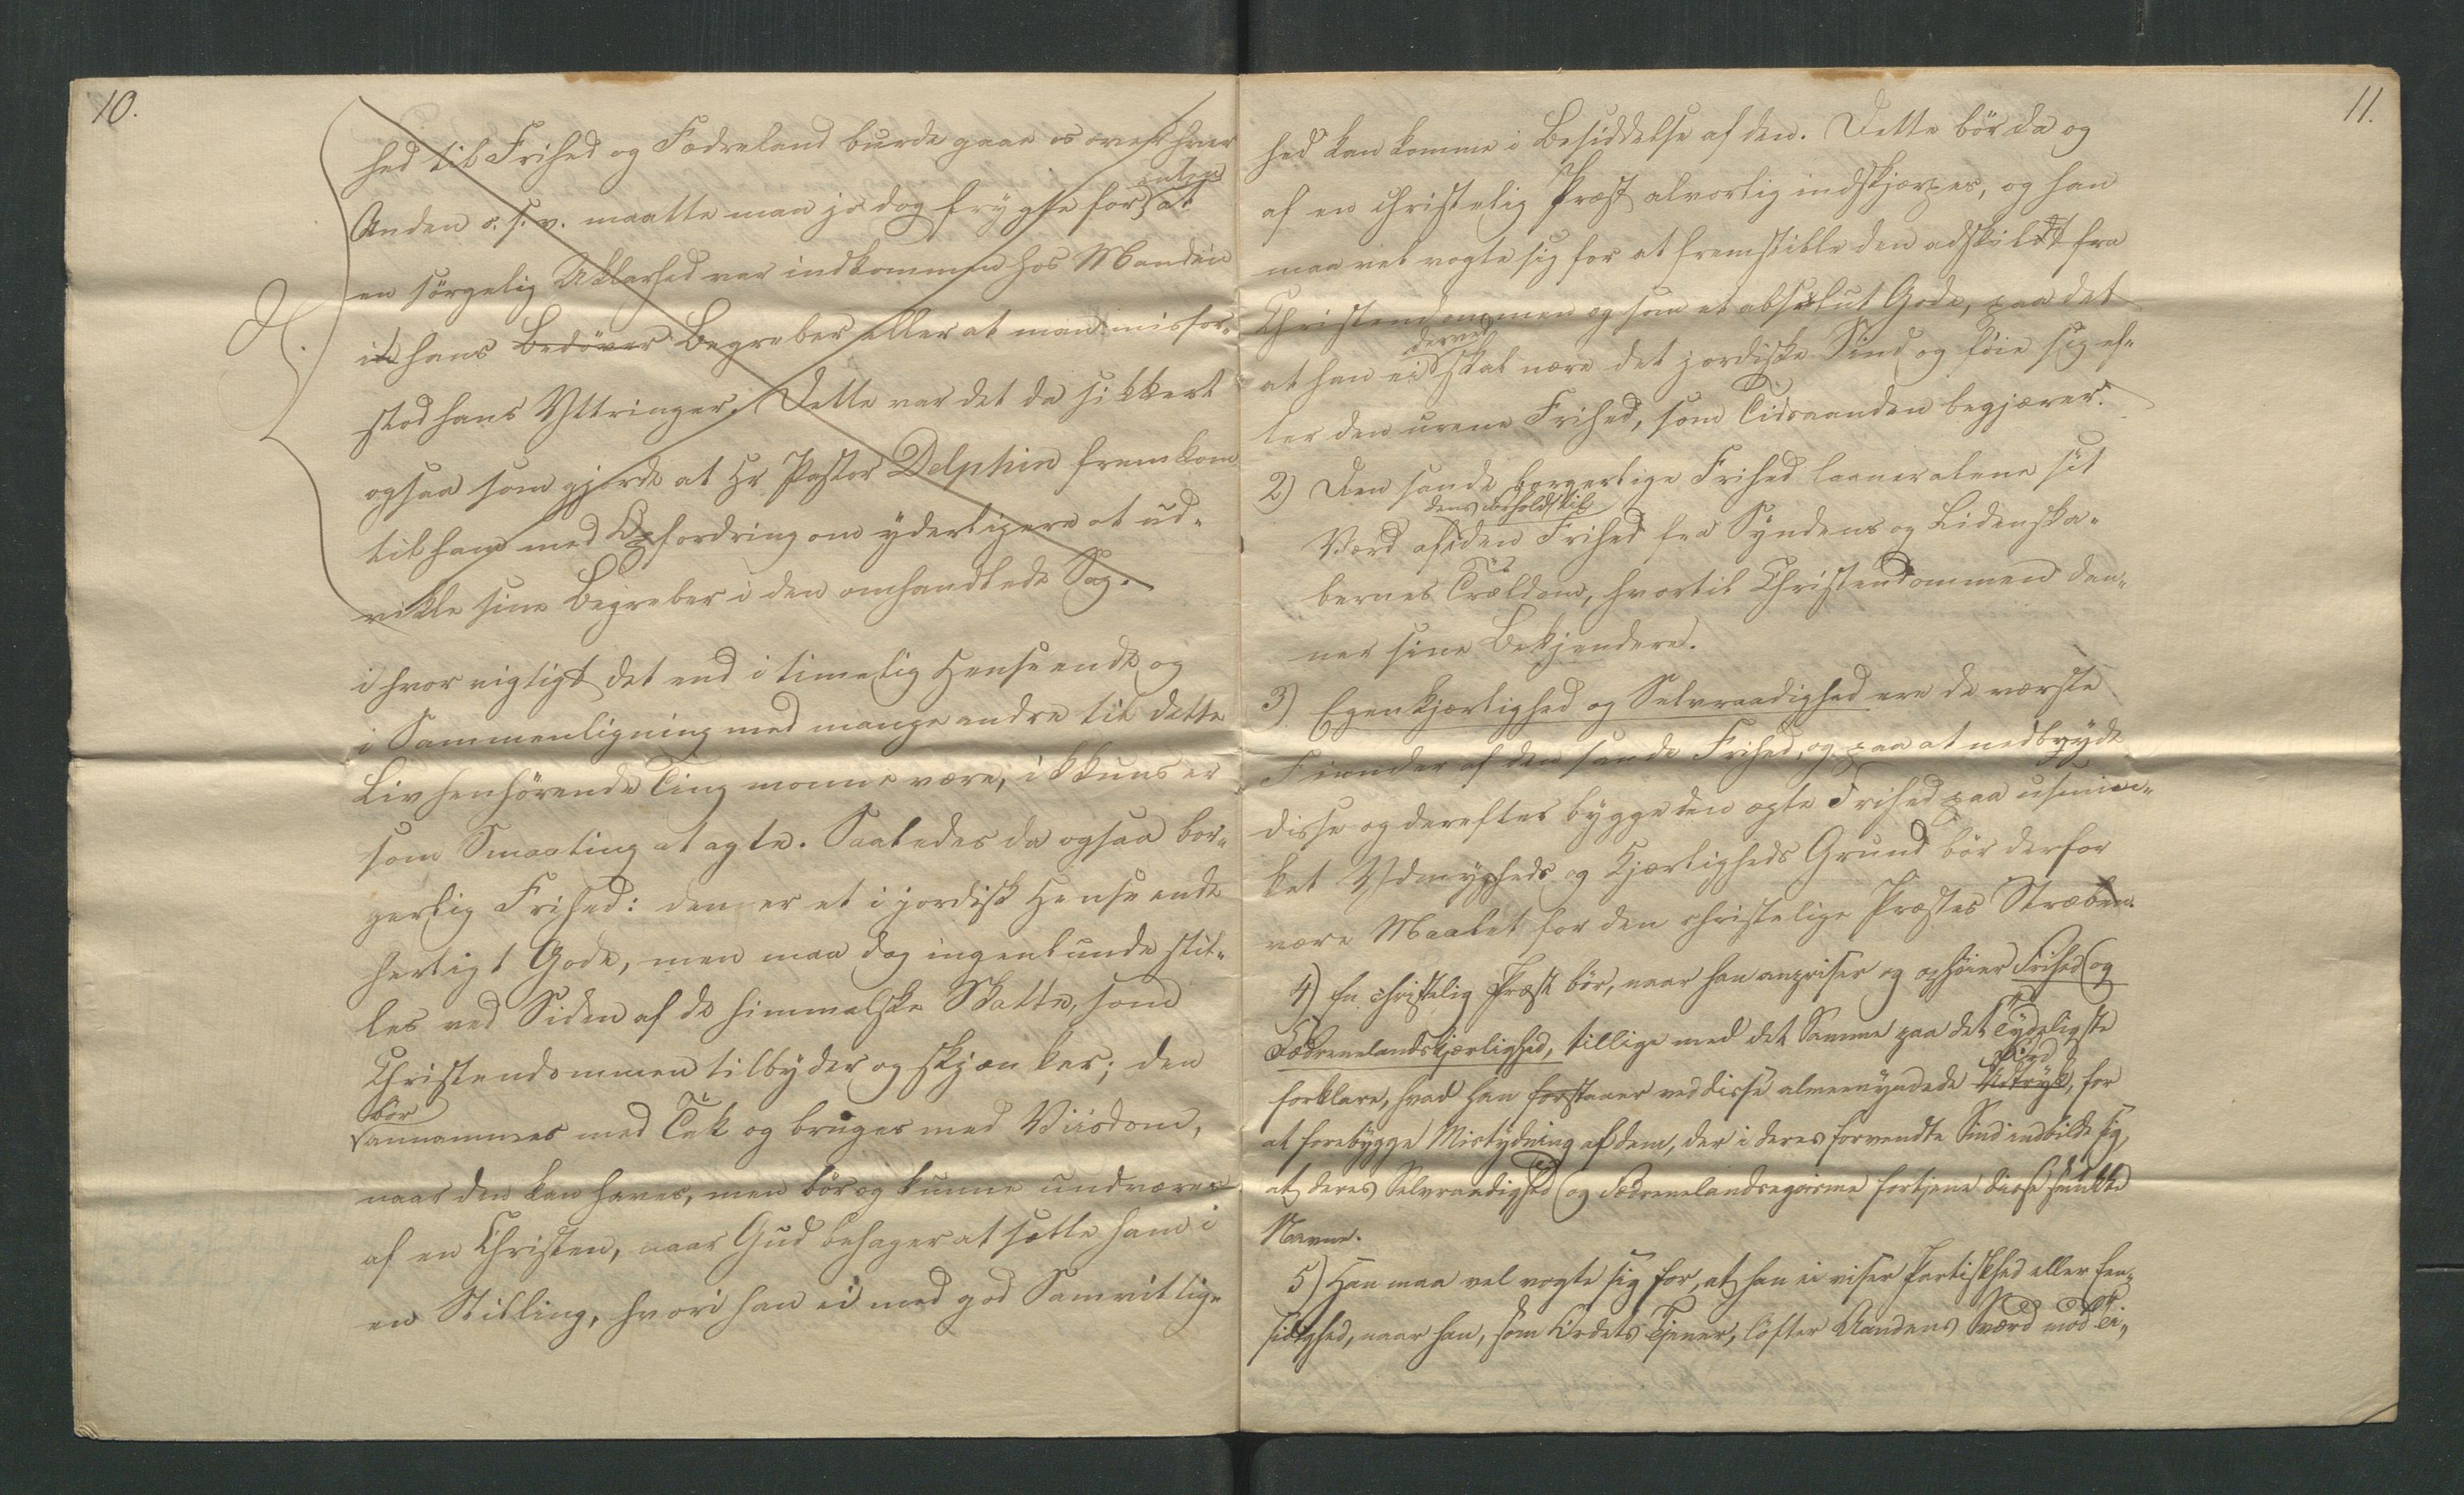 10.
hed til Frihed og Fædreland burde gaae os over hver
enten
Anden o. s. v. maatte man jo dog frygte for at
en sörgelig Uklarhed var indkommen hos Manden
i hans Bedöver Begreber eller at man misfor-
stod hans Yttringer. Dette var det da sikkert
ogsaa som gjorde at Hr Pastor Delphin fremkom
til ham med Opfordring om yderligere at ud-
vikle sine Begreber i den omhandlede Sag.
i hvor vigtigt det end i timelig Henseende og
i Sammenligning med mange andre til dette
Liv henhörende Ting monne være, ikkuns er
som Smaating at agte. Saaledes da ogsaa bor-
gerlig Frihed: den er et i jordisk Henseende
herligt Gode, men maa dog ingenlunde stil-
les ved Siden af de himmelske Skatte, som
Christendommen tilbyder og skjænker; den
bör
annammes med Tak og bruges med Viisdom,
naar den kan haves, men bör og kunne undværes
af en Christen, naar Gud behager at sætte ham i
en Stilling, hvori han ei med god Samvittig-
11.
hed kan komme i Besiddelse af den. Dette bör da og
af en christelig Præst alvorlig indskjærpes, og han
maa vel vogte sig for at fremstille den adskilt fra
Christendommen og som et absolut Gode, paa det
derved
at han ei skal nære det jordiske Sind og föie sig ef-
ter den urene Frihed, som Tidsaanden begjærer.
2) Den sande borgerlige Frihed laaner alene sit
dens Forhold til
Værd af den Frihed fra Syndens og Lidenska-
bernes Trældom, hvortil Christendommen dan-
ner sine Bekjendere.
3) Egenkjærlighed og Selvraadighed ere de værste
Fiender af den sande Frihed, og paa at nedbryde
disse og derefter bygge den ægte Frihed paa usmin-
ket Ydmygheds og Kjærligheds Grund bör derfor
være Maalet for den christelige Præstes Stræben.
4) En christelig Præst bör, naar han anpriser og ophöier Frihed og
Fædrenelandskjærlighed, tillige med det Samme paa det Tydeligste
forklare, hvad han forstaaer ved disse almeenyndede Udtryk, for
at forebygge Mistydning af dem, der i deres forvendte Sind indbilde sig,
at deres Selvraadighed og Fædrenelandsegoisme fortjene disse smukke
Navne.
5) Han maa vel vogte sig for, at han ei viser Partiskhed eller Een-
sidighed, naar han, som Ordets Tjener, löfter Aandens Sværd mod Ti-